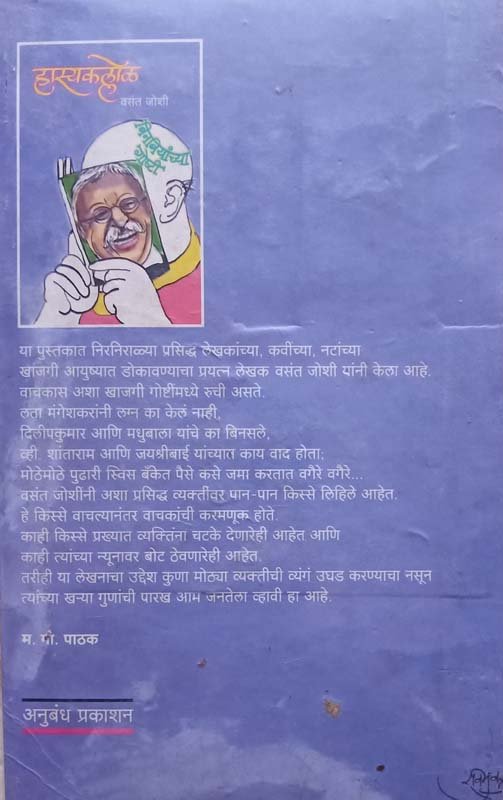 हास्यकल्लोळ
वसंत जोशी
बिनबियांच्या
गोष्टी
या पुस्तकात निरनिराळ्या प्रसिद्ध लेखकांच्या, कवींच्या, नटांच्या
खाजगी आयुष्यात डोकावण्याचा प्रयत्न लेखक वसंत जोशी यांनी केला आहे.
वाचकास अशा खाजगी गोष्टींमध्ये रुची असते.
लता मंगेशकरांनी लग्न का केलं नाही,
दिलीपकुमार आणि मधुबाला यांचे का बिनसले,
व्ही. शांताराम आणि जयश्रीबाई यांच्यात काय वाद होता;
मोठेमोठे पुढारी स्विस बँकेत पैसे कसे जमा करतात वगैरे वगैरे...
वसंत जोशींनी अशा प्रसिद्ध व्यक्तींवर पान-पान किस्से लिहिले आहेत.
हे किस्से वाचल्यानंतर वाचकांची करमणूक होते.
काही किस्से प्रख्यात व्यक्तिंना चटके देणारेही आहेत आणि
काही त्यांच्या न्यूनावर बोट ठेवणारेही आहेत.
तरीही या लेखनाचा उद्देश कुणा मोठ्या व्यक्तीची व्यंगं उघड करण्याचा नसून
त्यांच्या खऱ्या गुणांची पारख आम जनतेला व्हावी हा आहे.
म. गो. पाठक
अनुबंध प्रकाशन